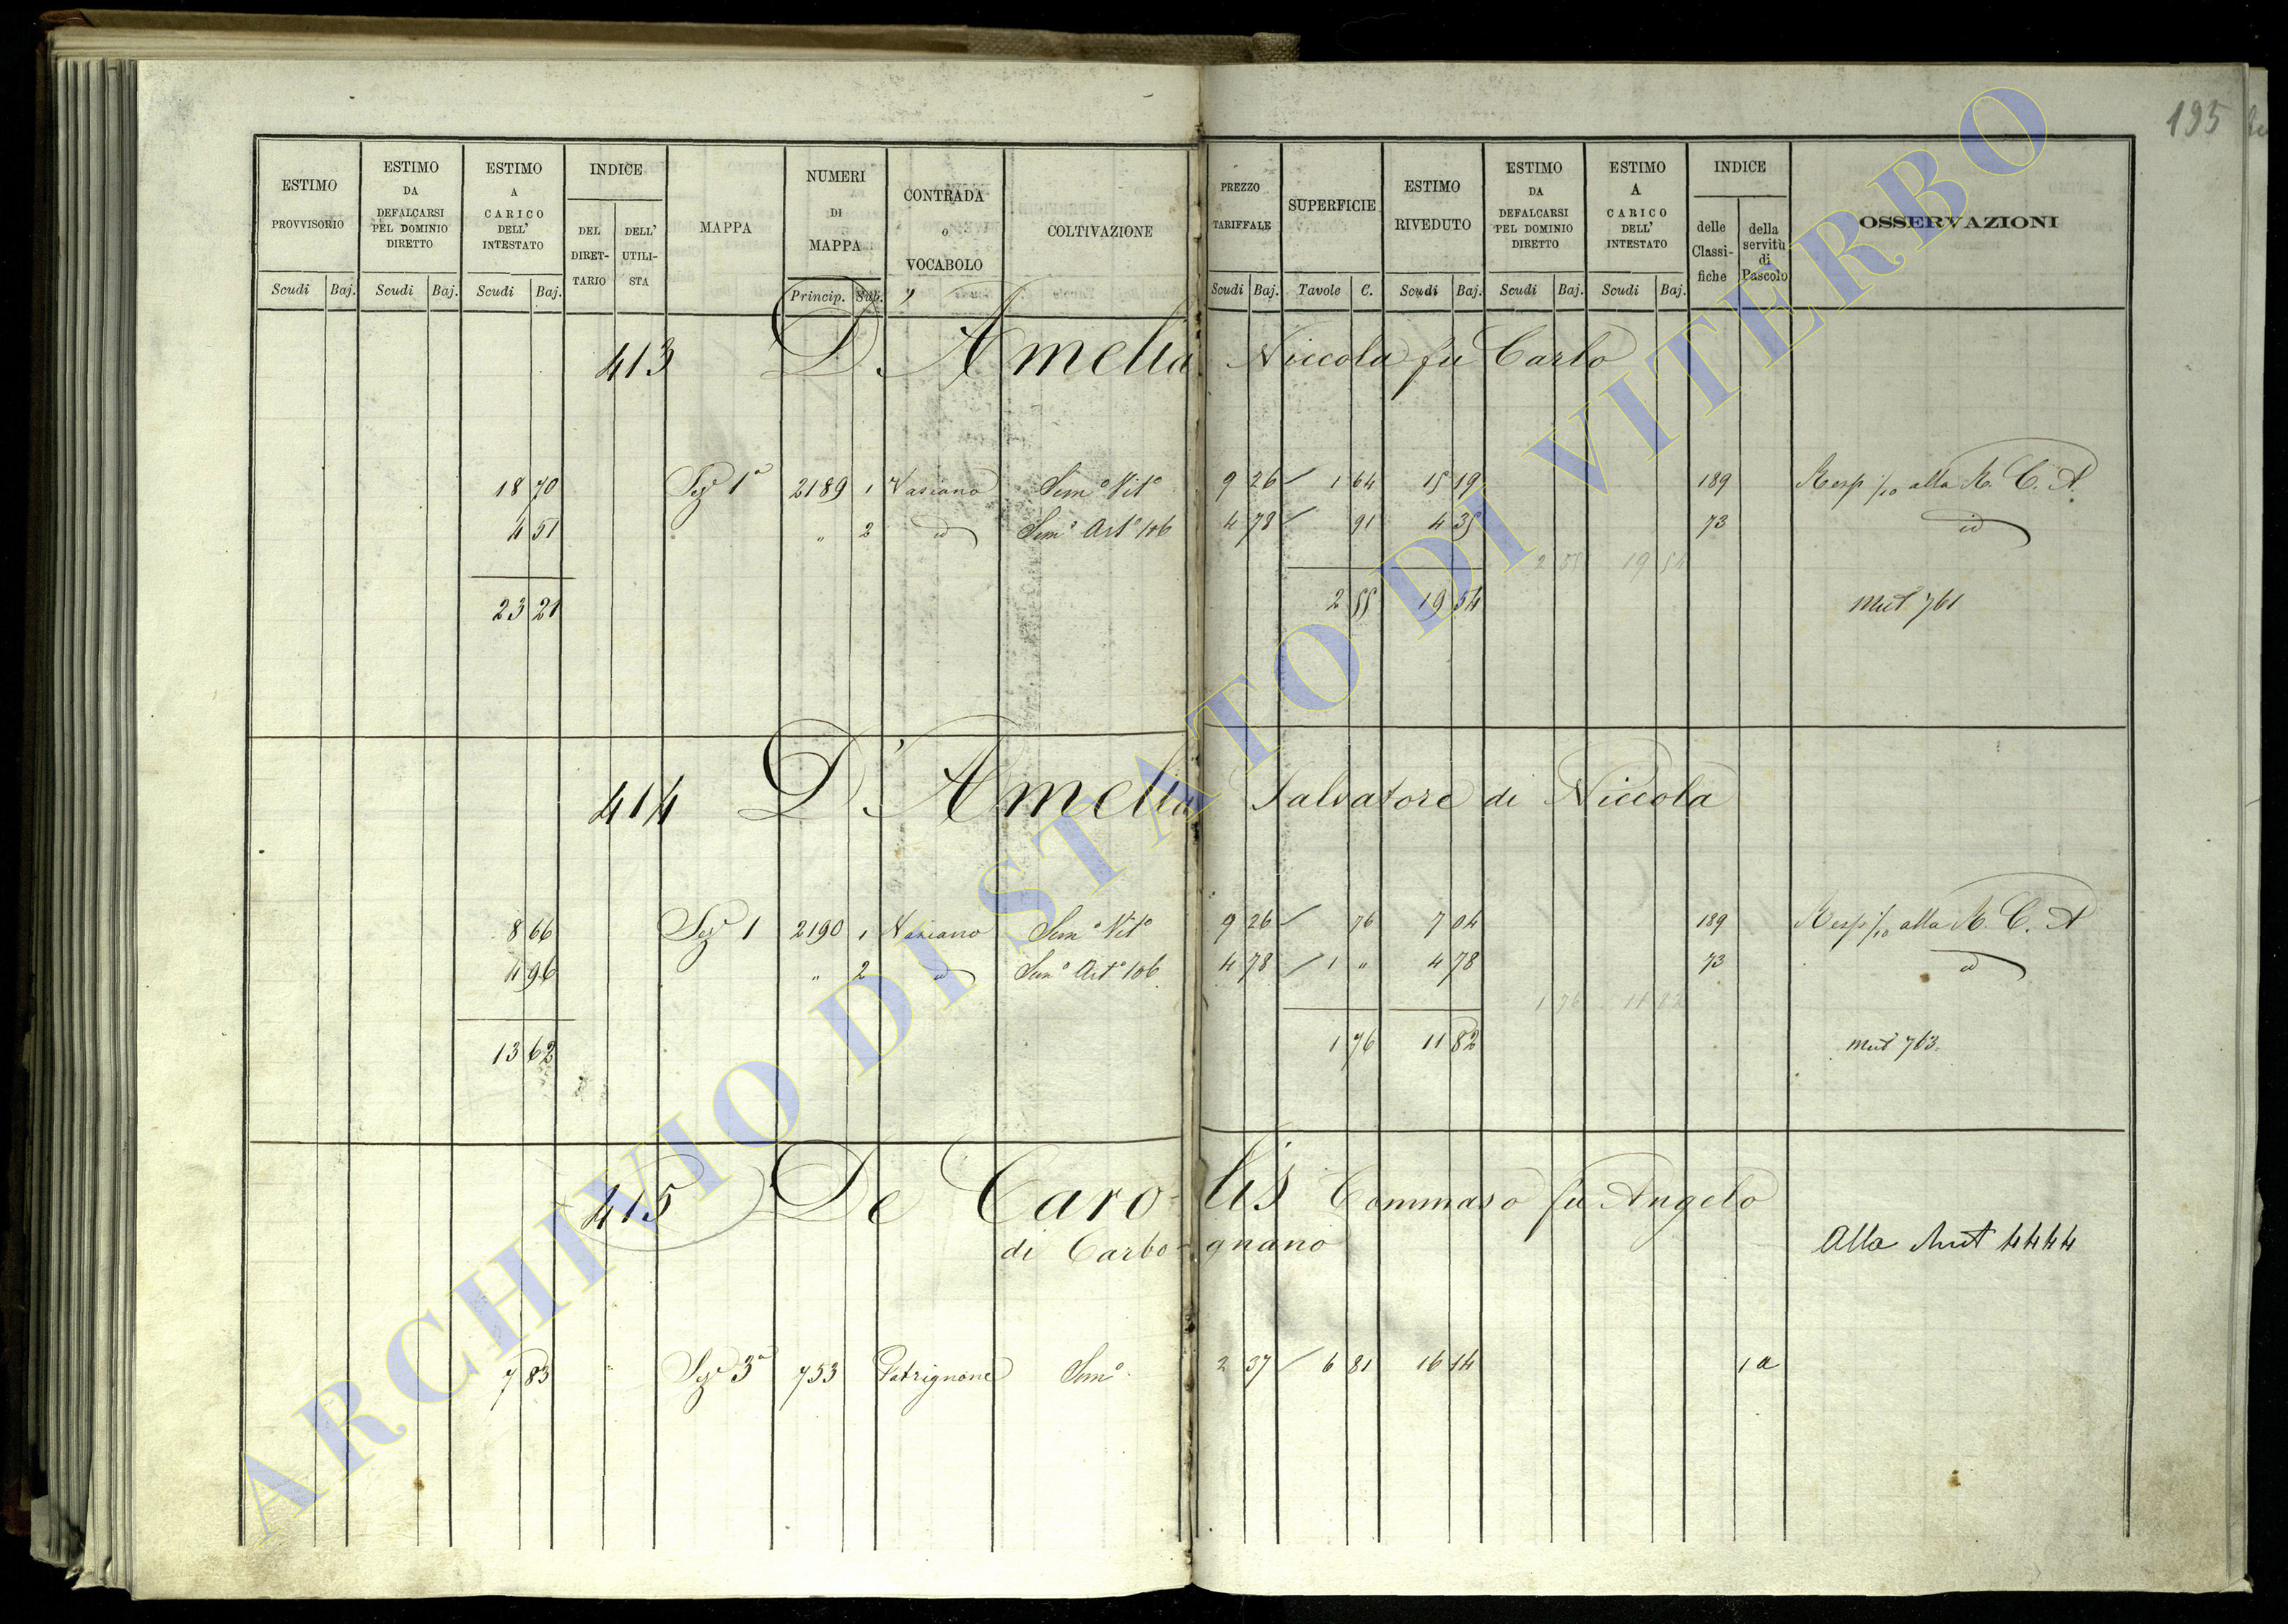 195
ESTIMO PROVVISORIO
ESTIMO DA DEFALCARSI PEL DOMINIO DIRETTO
ESTIMO A CARICO DELL' INTESTATO
INDICE
DEL DIRET-TARIO
DELL' UTILI-STA
MAPPA
NUMERI DI MAPPA
CONTRADA o VOCABOLO
COLTIVAZIONE
PREZZO TARIFFALE
SUPERFICIE
ESTIMO RIVEDUTO
ESTIMO DA DEFALCARSI PEL DOMINIO DIRETTO
ESTIMO A CARICO DELL' INTESTATO
INDICE
delle Classi-fiche
della servitù di Pascolo
OSSERVAZIONI
Scudi Baj. Scudi Baj. Scudi Baj. Princip. Sub. Scudi Baj. Tavole C. Scudi Baj. Scudi Baj. Scudi Baj.
413 D'Amelia Niccola fu Carlo
18 70 Sez 1a 2189 1 Vasciano Semo Vito 9 26 1 64 15 19 189 Resp 1/10 alla R. C. A.
4 51 " 2 id Semo Arto 106 4 78 91 4 35 73 id
2 55 19 54
23 21 2 55 19 54 Mut 761
414 D'Amelia Salvatore di Niccola
8 66 Sez 1 2190 1 Vasciano Semo Vito 9 26 76 7 04 189 Resp 1/10 alla R. C. A
4 96 " 2 id Semo Arto 106 4 78 1 " 4 78 73 id
1 76 11 82
13 62 1 76 11 82 Mut 763
415 De Caro-lis Tommaso fu Angelo
di Carbo-gnano Alla Mut 4444
7 83 Sez 3a 753 Patrignone Semo 2 37 6 81 16 14 1 a
ARCHIVIO DI STATO DI VITERBO